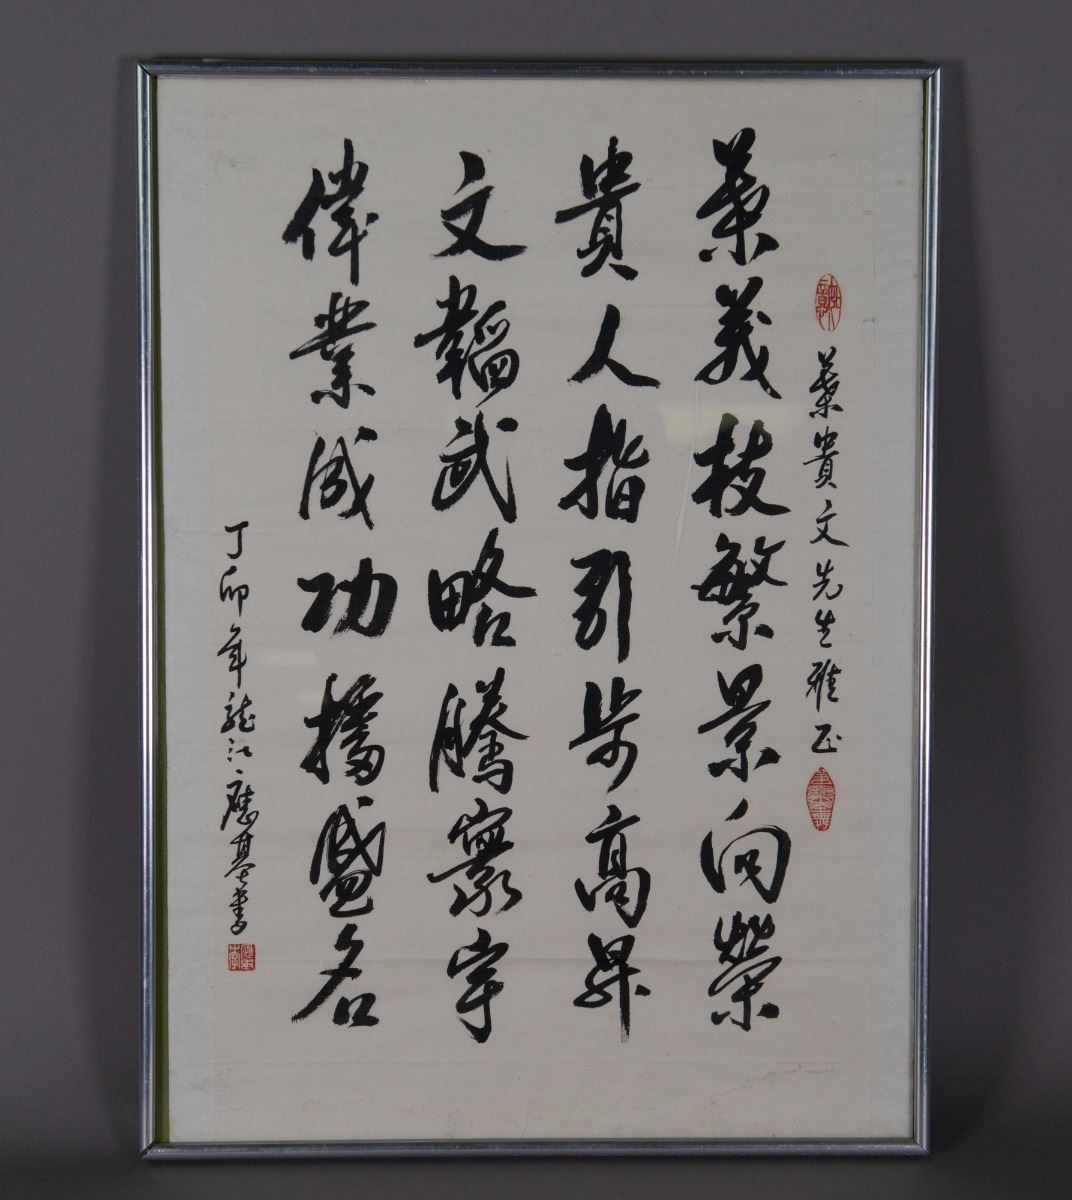 葉貴文先生雅正
葉茂枝繁景向榮
貴人指引步高昇
文韜武略騰寰宇
偉業成功播盛名
丁卯年龍江應基書